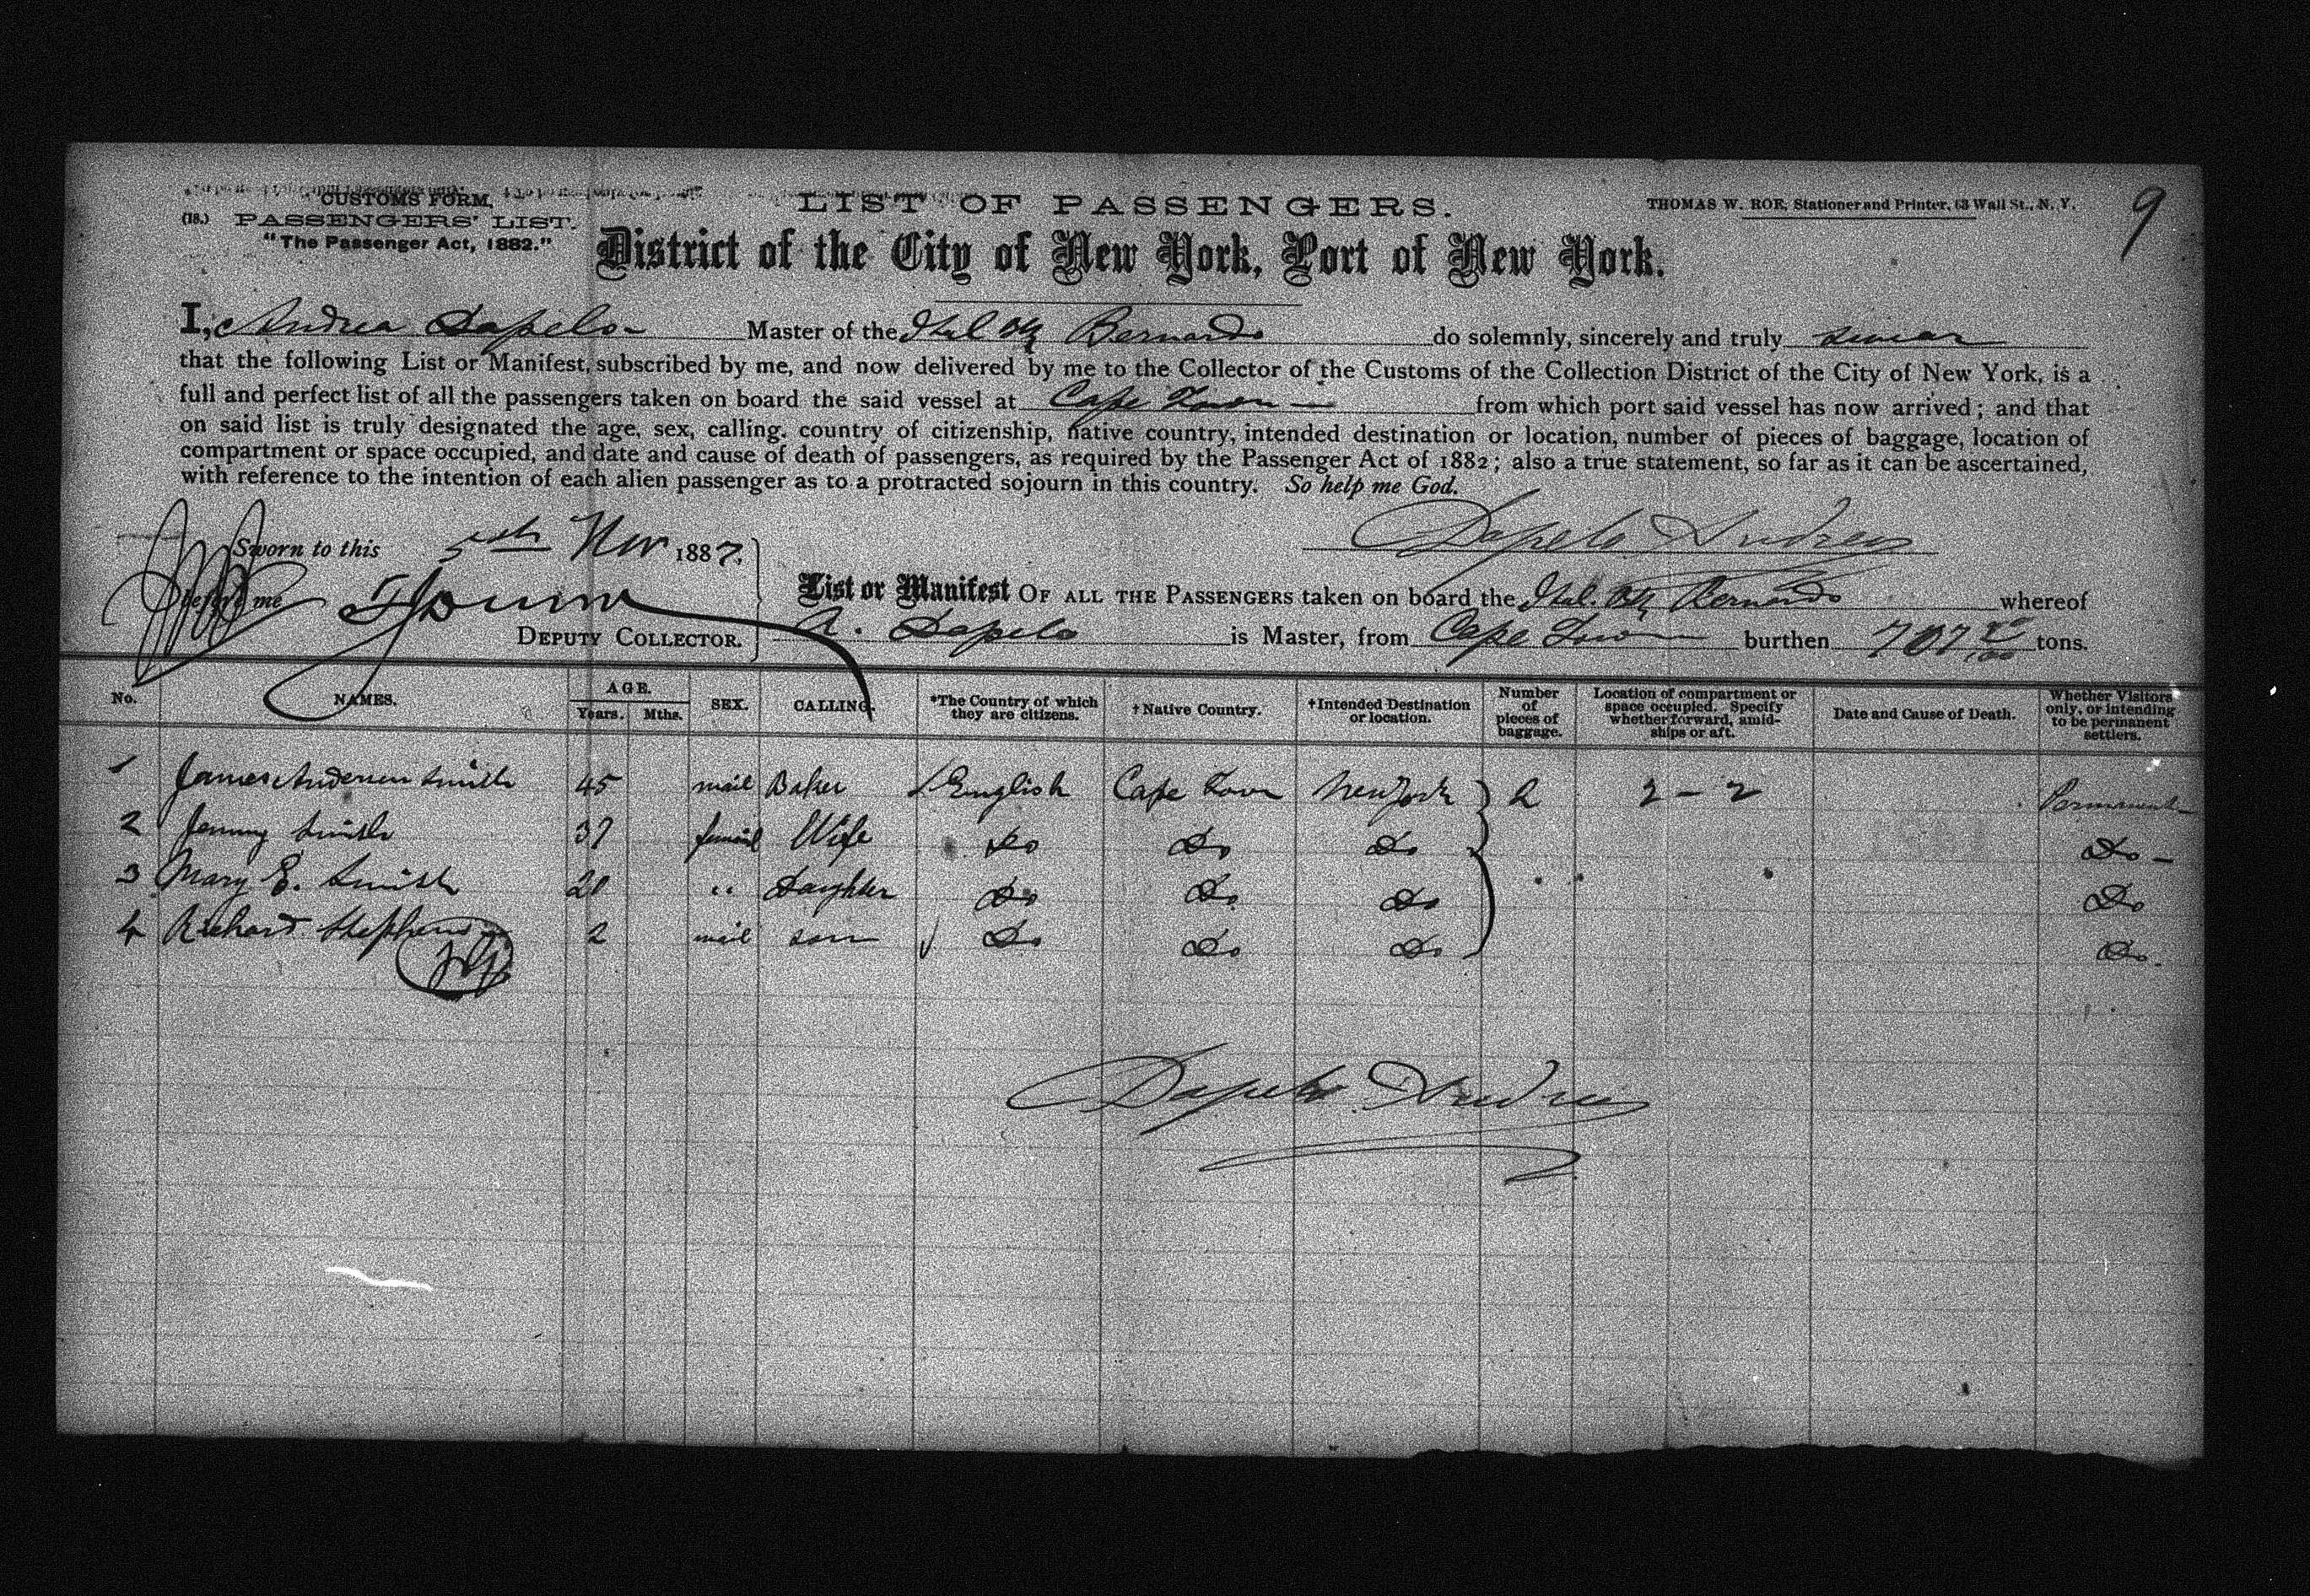 CUSTOMS FORM,
(18.) PASSENGERS' LIST.
"The Passenger Act, 1882."
LIST OF PASSENGERS.
THOMAS W. ROE, Stationer and Printer, 63 Wall St., N. Y.
9
District of the City of New York, Port of New York.
I, Andrea Dapelo Master of the Ital Bk Bernardo do solemnly, sincerely and truly swear
that the following List or Manifest, subscribed by me, and now delivered by me to the Collector of the Customs of the Collection District of the City of New York, is a
full and perfect list of all the passengers taken on board the said vessel at Cape Town from which port said vessel has now arrived; and that
on said list is truly designated the age, sex, calling, country of citizenship, native country, intended destination or location, number of pieces of baggage, location of
compartment or space occupied, and date and cause of death of passengers, as required by the Passenger Act of 1882; also a true statement, so far as it can be ascertained,
with reference to the intention of each alien passenger as to a protracted sojourn in this country. So help me God.
Dapelo Andrea
Sworn to this 5th Nov 1887.
before me
DEPUTY COLLECTOR.
List or Manifest OF ALL THE PASSENGERS taken on board the Ital. Bk Bernardo whereof
A. Dapelo is Master, from Cape Town burthen 707 /100 tons.
No. NAMES. AGE. Years. Mths. SEX. CALLING. *The Country of which they are citizens. †Native Country. †Intended Destination or location. Number of pieces of baggage. Location of compartment or space occupied. Specify whether forward, amidships or aft. Date and Cause of Death. Whether Visitors only, or intending to be permanent settlers.
1 James Andersen Smith 45 mail Baker English Cape Town New York 2 2 - 2 Permanent
2 Jenny Smith 37 femail Wife Do Do Do Do -
3 Mary E. Smith 20 " Daughter Do Do Do Do
4 Richard Stephens 2 mail son Do Do Do Do.
Dapelo Andrea